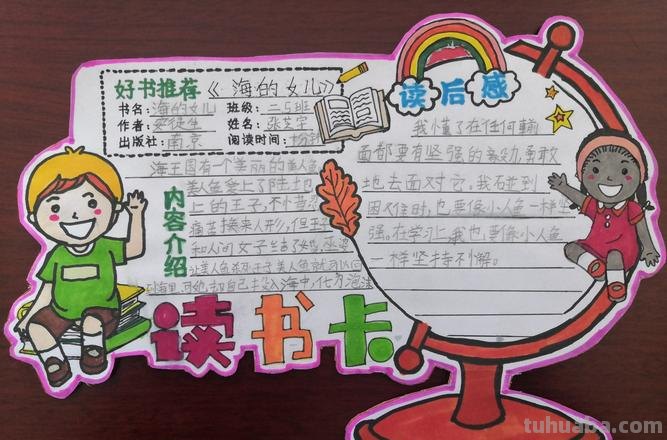 好书推荐《海的女儿》
书名：海的女儿 班级：二5班
作者：安徒生 姓名：张芝宝
出版社：南京 阅读时间：
内容介绍
海王国有一个美丽的美人鱼
美人鱼爱上了陆上的王子，不
痛苦换来人形，但王子
和人间女子结了婚
美人鱼就可以回
到海里，可她把自己投入海中，化为泡沫
读后感
我懂了在任何
面都要有坚强的 勇敢
地去面对它。我在碰到
困难时，也要像小人鱼一样坚
强。在学习上我也要像小人鱼
一样坚持不懈。
读书卡
tuhuaba.com